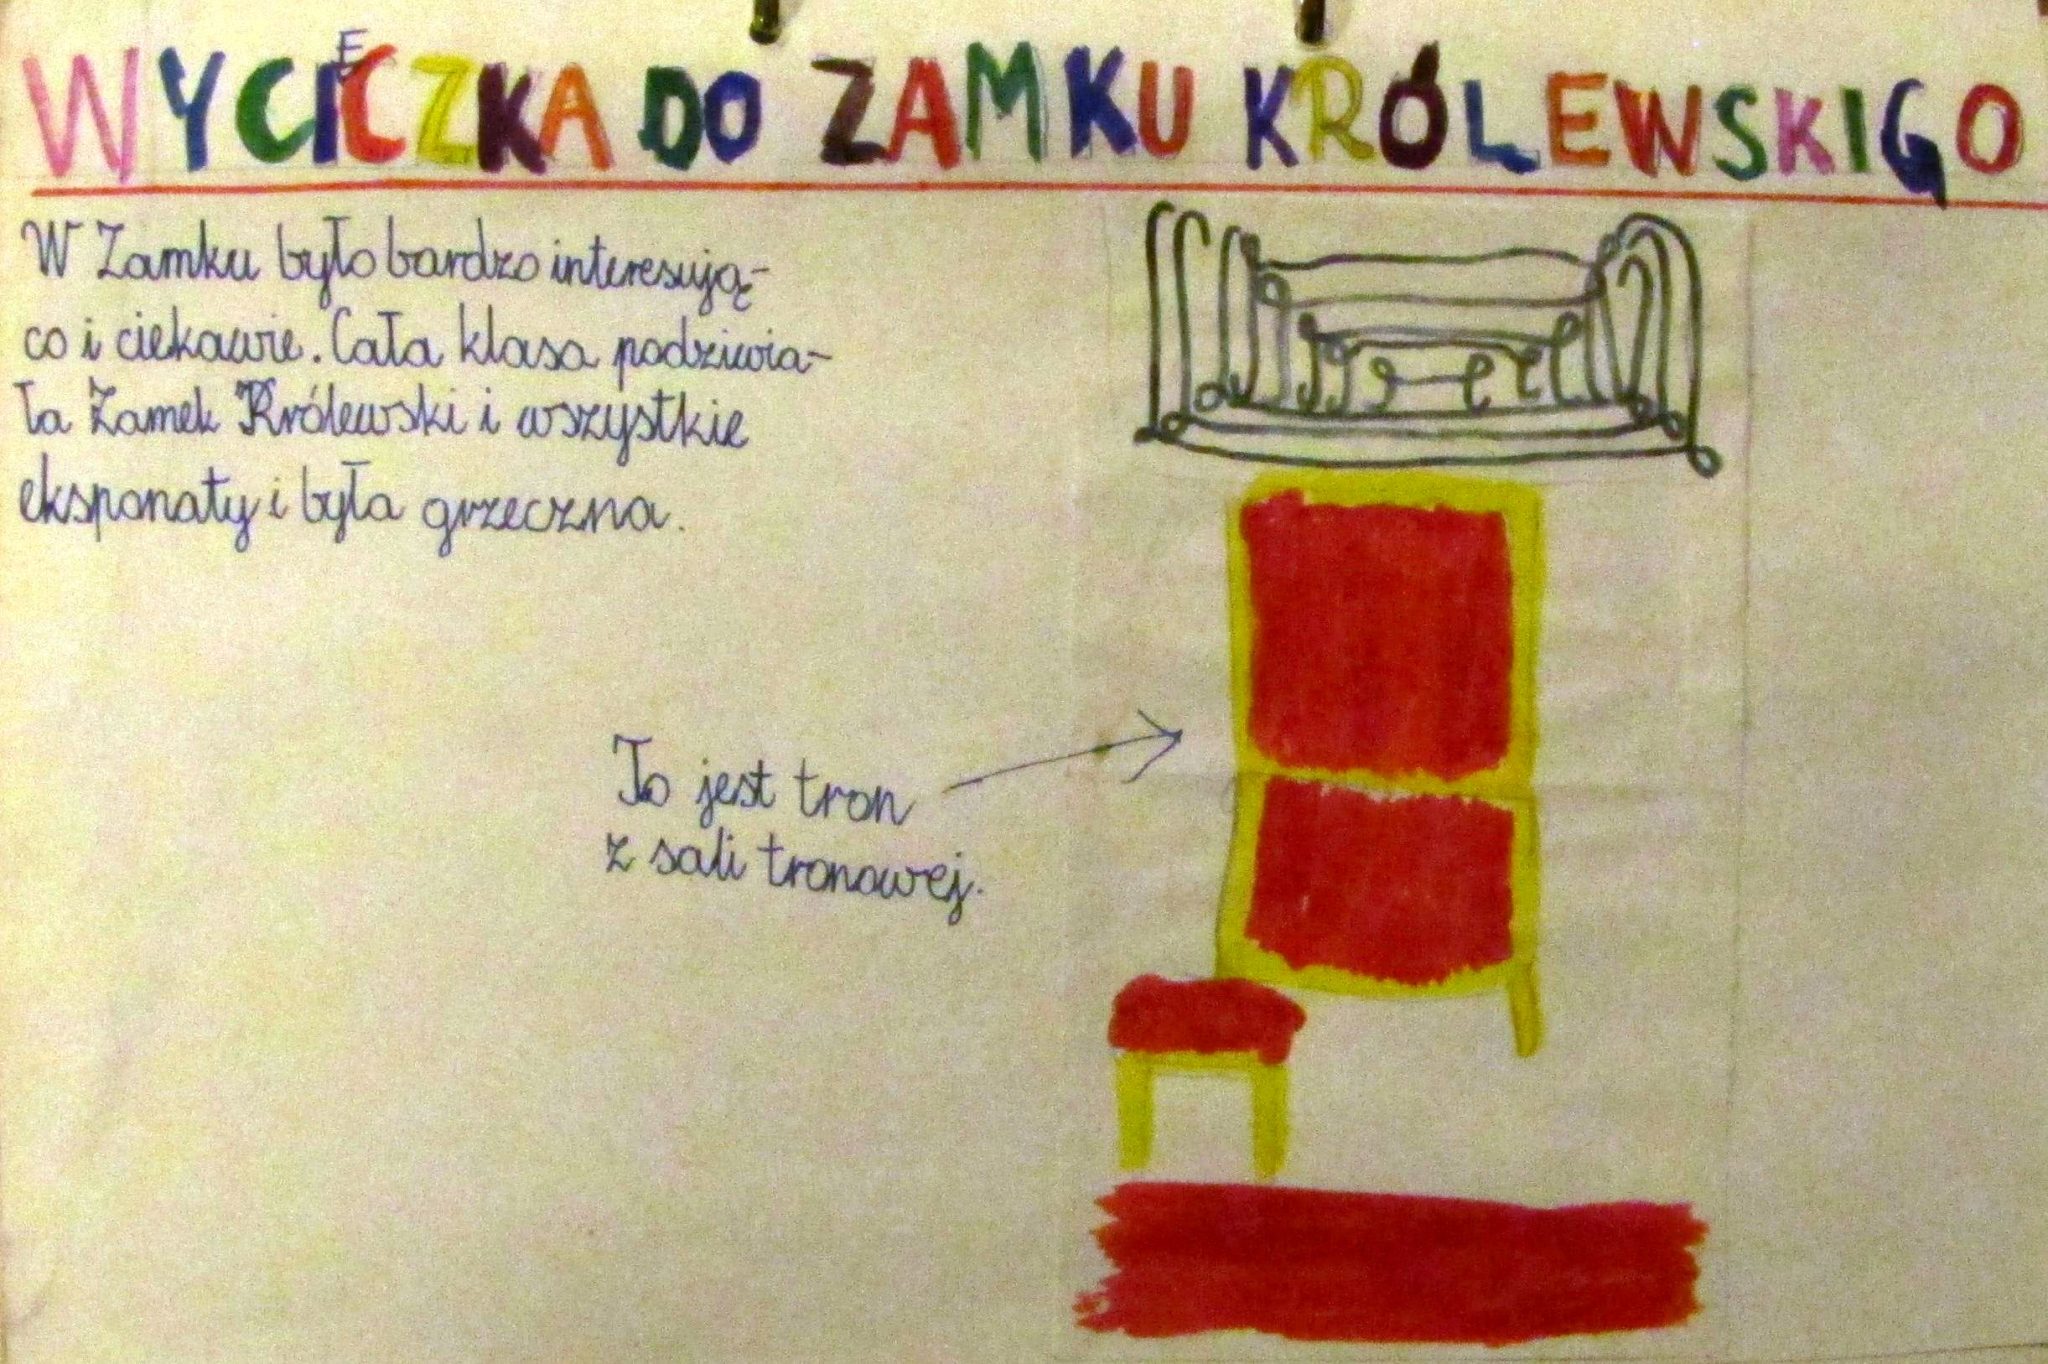 WYCIECZKA DO ZAMKU KRÓLEWSKIGO
W Zamku było bardzo interesują-
co i ciekawie. Cała klasa podziwia-
ła Zamek Królewski i wszystkie
eksponaty i była grzeczna.
To jest tron
z sali tronowej.